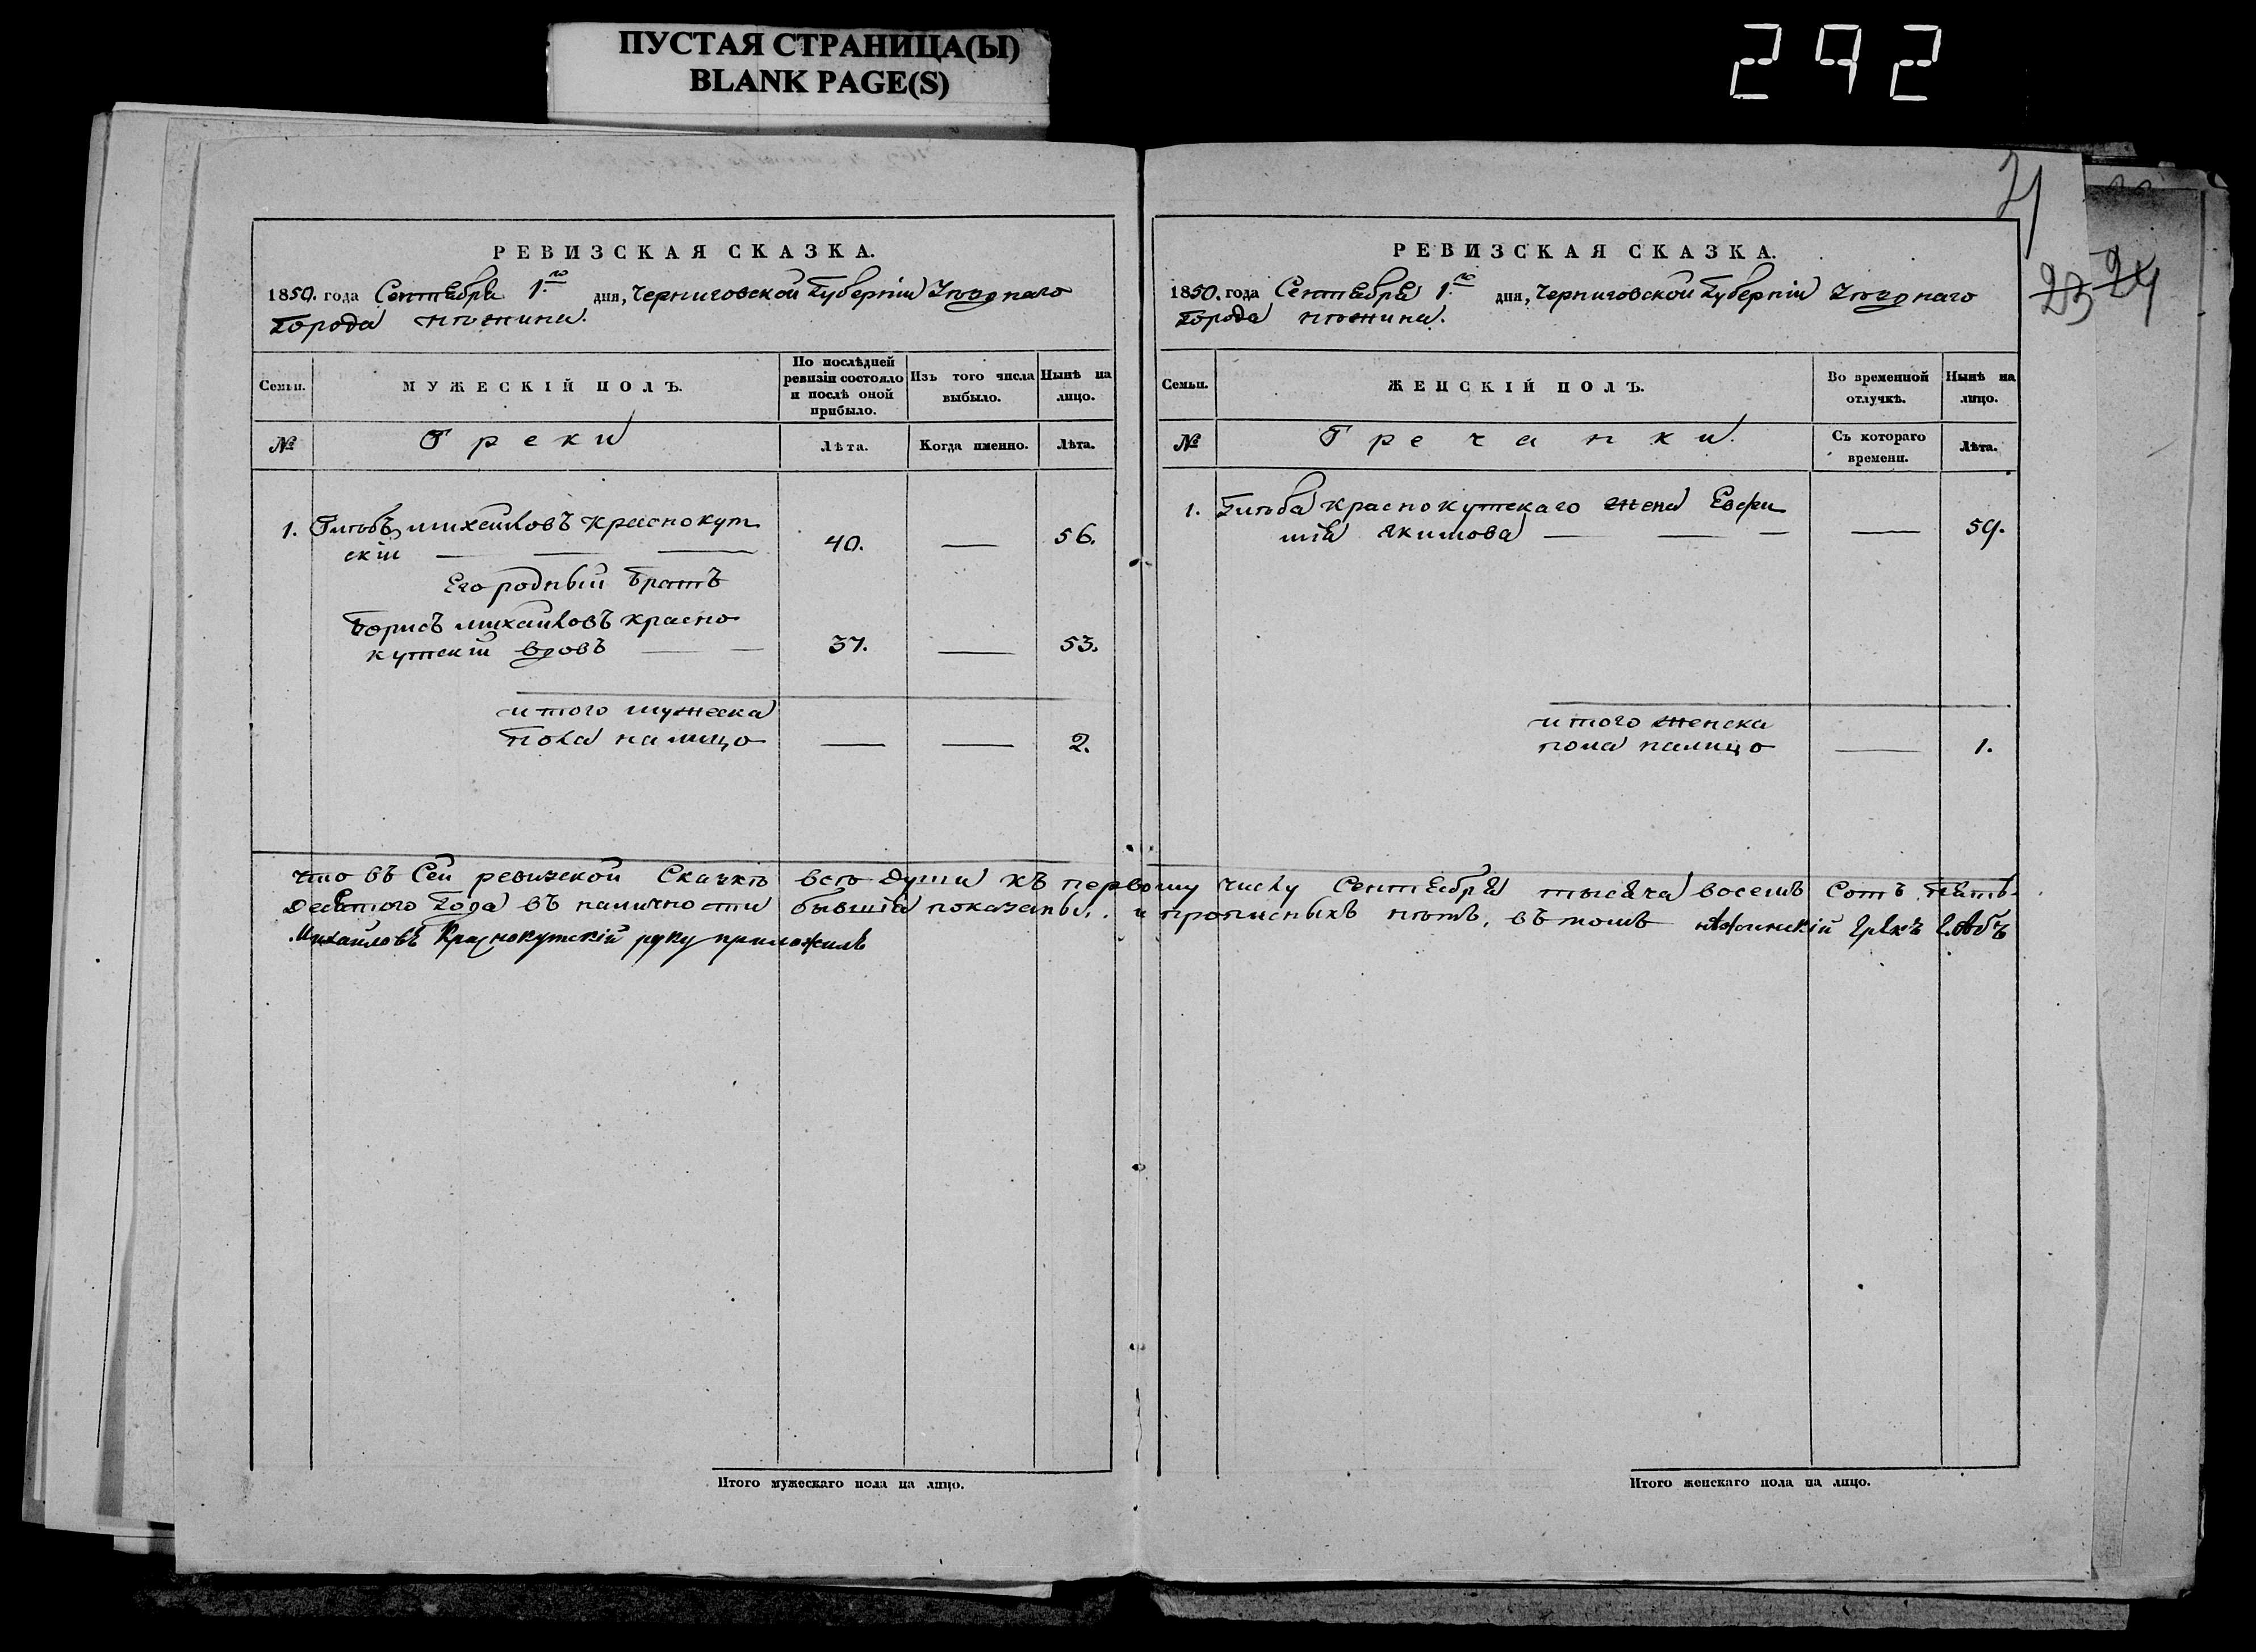 ПУСТАЯ СТРАНИЦА(Ы)
BLANK PAGE(S)
292
21
23 24
РЕВИЗСКАЯ СКАЗКА.
1850. года Сентября 1.го дня, Черниговской Губерніи Уѣзднаго
Города Нѣжина.
Семьи.
МУЖЕСКІЙ ПОЛЪ.
По послѣдней ревизіи состояло и послѣ оной прибыло.
Изъ того числа выбыло.
Нынѣ на лицо.
№
Греки
Лѣта.
Когда именно.
Лѣта.
1. Глѣбъ Михайловъ Краснокут
скій — — — 40. — 56.
Его родный братъ
Борисъ Михайловъ Красно
кутскій вдовъ — — 37. — 53.
итого мужеска
пола налицо — — 2.
РЕВИЗСКАЯ СКАЗКА.
1850. года Сентября 1.го дня, Черниговской Губерніи Уѣзднаго
Города Нѣжина.
Семьи.
ЖЕНСКІЙ ПОЛЪ.
Во временной отлучкѣ.
Нынѣ на лицо.
№
Гречанки.
Съ котораго времени.
Лѣта.
1. Глѣба Краснокутскаго жена Евфи
мія Якимова — — — — 59.
итого женска
пола налицо — 1.
что въ Сей ревизской Сказкѣ всѣ души къ первому числу Сентября тысяча восемь сотъ пять-
десятого Года въ наличности бывшія показаны, и прописныхъ нѣтъ, въ томъ нѣжинскій грекъ Глѣбъ
Михайловъ Краснокутскій руку приложилъ
Итого мужескаго пола на лицо.
Итого женскаго пола на лицо.